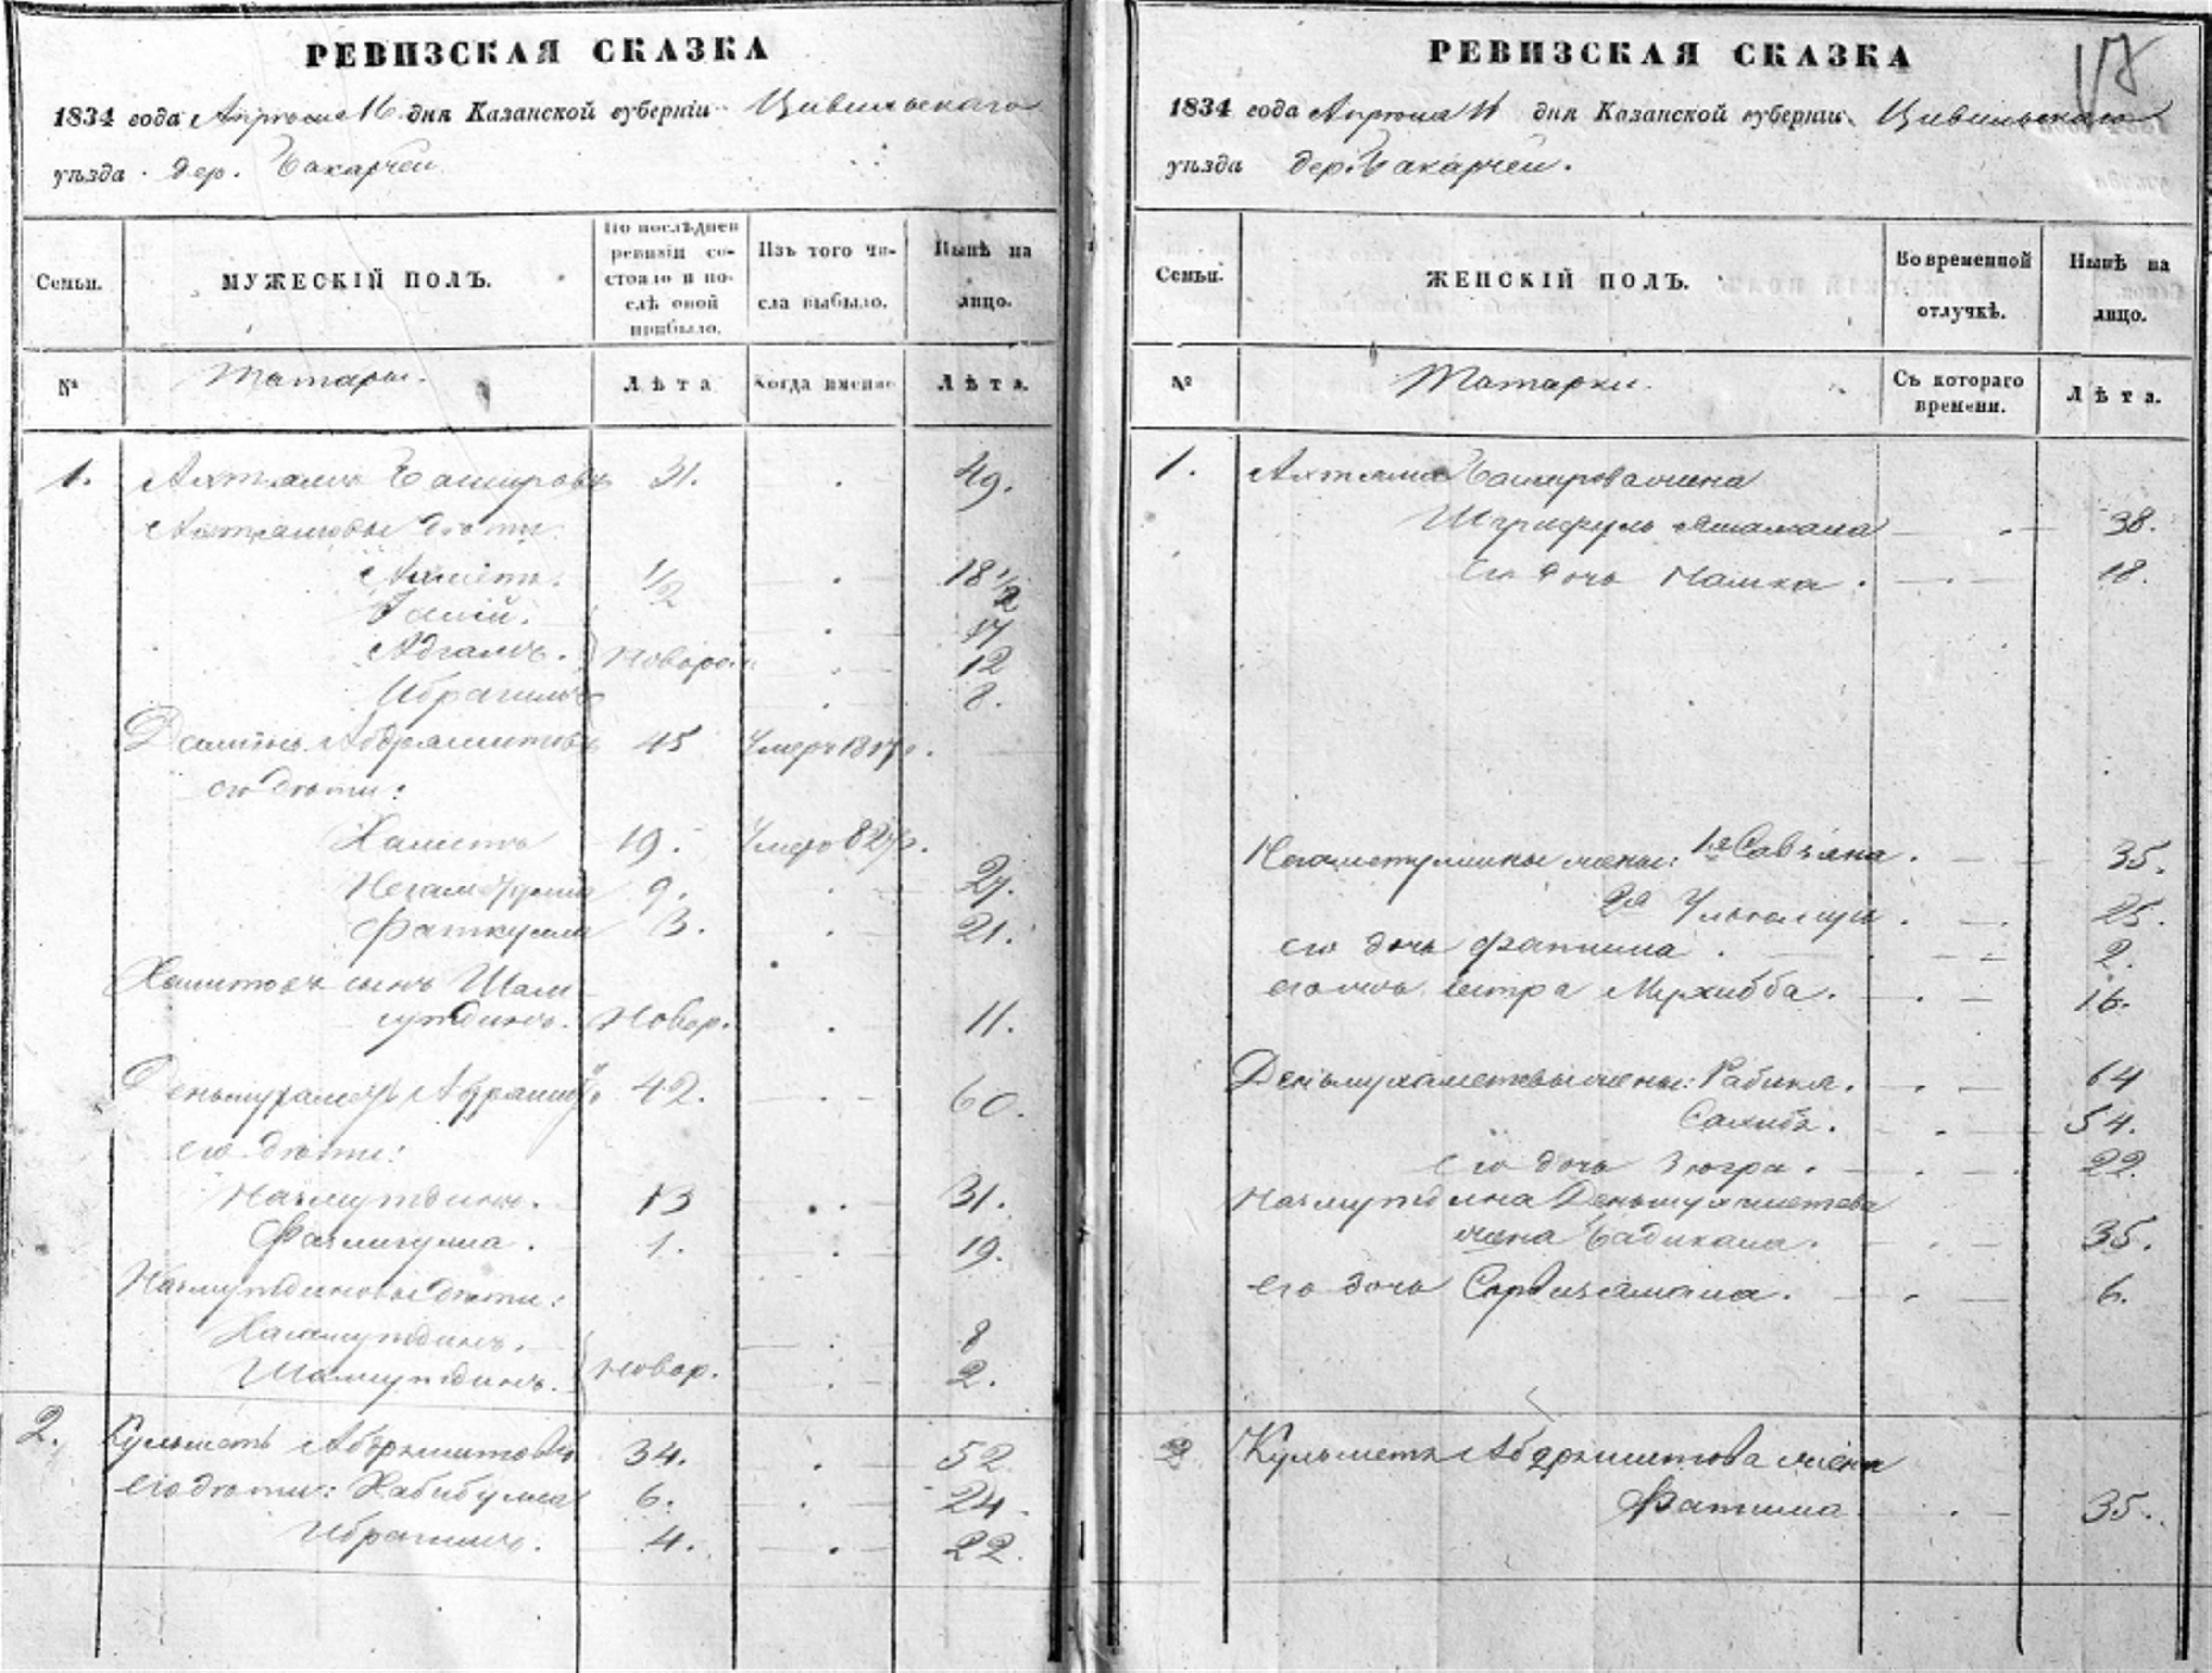 РЕВИЗСКАЯ СКАЗКА
1834 года Апреля 16 дня Казанской губерніи Цивильскаго
уѣзда дер. Бакарчеи
Семьи.
МУЖЕСКІЙ ПОЛЪ.
По послѣдней ревизіи состояло и послѣ оной прибыло.
Изъ того числа выбыло.
Нынѣ на лицо.
№ Татары. Лѣта Когда именно Лѣта.
1. Ахтямъ Башировъ 31. 49.
Ахтямовы дѣти
Ахметъ. 1/2 18 1/2
17
Адгамъ. Новорож 12
Ибрагимъ 8.
Абдрашитовъ 45 Умеръ 1817
его дѣти:
Хамитъ 19. Умеръ 827.
9. 27.
Фаткулла 3. 21.
Хамитовъ сынъ Шам
сутдинъ. Новор. 11.
Деньмухаметъ Абдрашит 42. 60.
его дѣти:
Назмутдинъ. 13 31.
Фазлигулла. 1. 19.
Назмутдиновы дѣти:
8
Новор. 2.
2. Кульметь Абдрашитовъ 34. 52
его дѣти: Хабибулла 6. 24.
Ибрагимъ. 4. 22.
РЕВИЗСКАЯ СКАЗКА
17
1834 года Апреля 16 дня Казанской губерніи. Цивильскаго
уѣзда дер. Бакарчеи.
Семьи.
ЖЕНСКІЙ ПОЛЪ.
Во временной отлучкѣ.
Нынѣ на лицо.
№ Татарки. Съ котораго времени. Лѣта.
1. Ахтяма Баширова жена
38.
его дочь 18.
жены: 1я 35.
2я 25.
его дочь Фатима 2.
сестра Мухибба. 16.
Деньмухаметевы жены: Рабига. 64
Сахиба. 54.
его дочь Зюгра. 22.
Назмутдина Деньмухаметева
жена Бадигама. 35.
его дочь 6.
2 Кульметя Абдрашитова жена
Фатима 35.